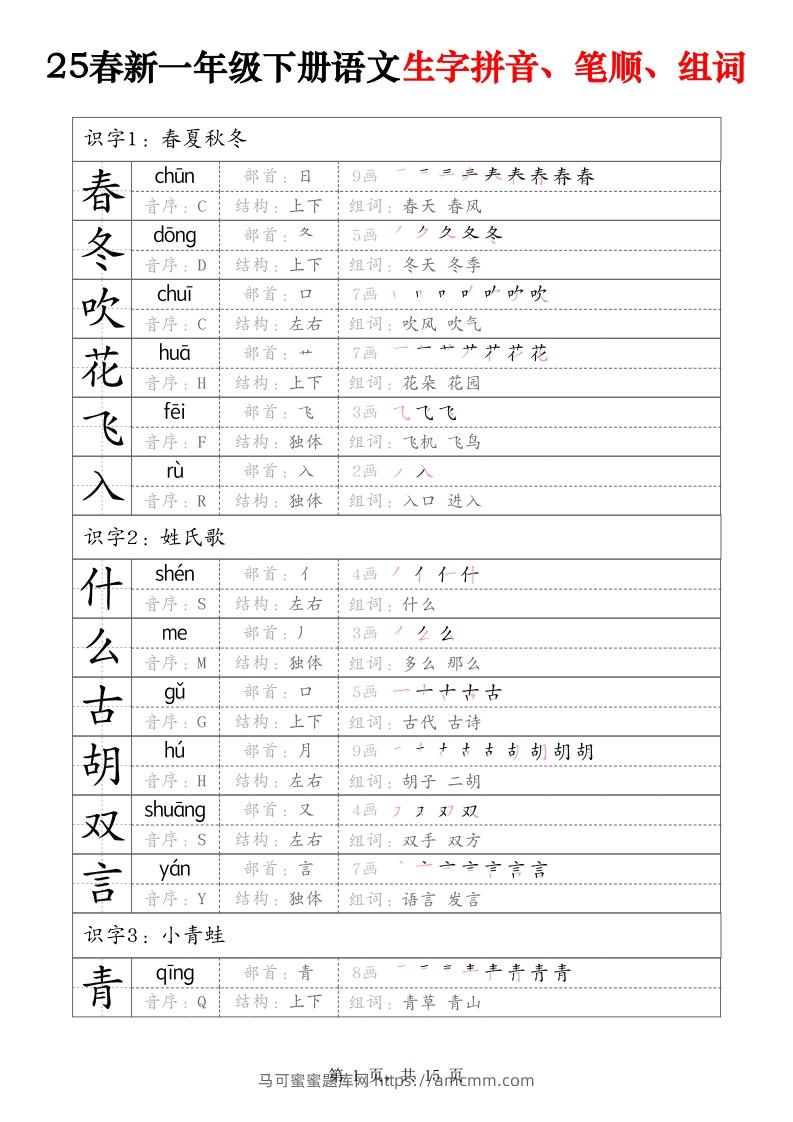 25春新一年级下册语文生字拼音、笔顺、组词
识字1：春夏秋冬
春 chūn 部首：日 9画
音序：C 结构：上下 组词：春天 春风
冬 dōng 部首：夂 5画
音序：D 结构：上下 组词：冬天 冬季
吹 chuī 部首：口 7画
音序：C 结构：左右 组词：吹风 吹气
花 huā 部首：艹 7画
音序：H 结构：上下 组词：花朵 花园
飞 fēi 部首：飞 3画
音序：F 结构：独体 组词：飞机 飞鸟
入 rù 部首：入 2画
音序：R 结构：独体 组词：入口 进入
识字2：姓氏歌
什 shén 部首：亻 4画
音序：S 结构：左右 组词：什么
么 me 部首：丿 3画
音序：M 结构：独体 组词：多么 那么
古 gǔ 部首：口 5画
音序：G 结构：上下 组词：古代 古诗
胡 hú 部首：月 9画
音序：H 结构：左右 组词：胡子 二胡
双 shuāng 部首：又 4画
音序：S 结构：左右 组词：双手 双方
言 yán 部首：言 7画
音序：Y 结构：独体 组词：语言 发言
识字3：小青蛙
青 qīng 部首：青 8画
音序：Q 结构：上下 组词：青草 青山
第 1 页，共 15 页
马可蜜蜜题库网 https://amcmm.com